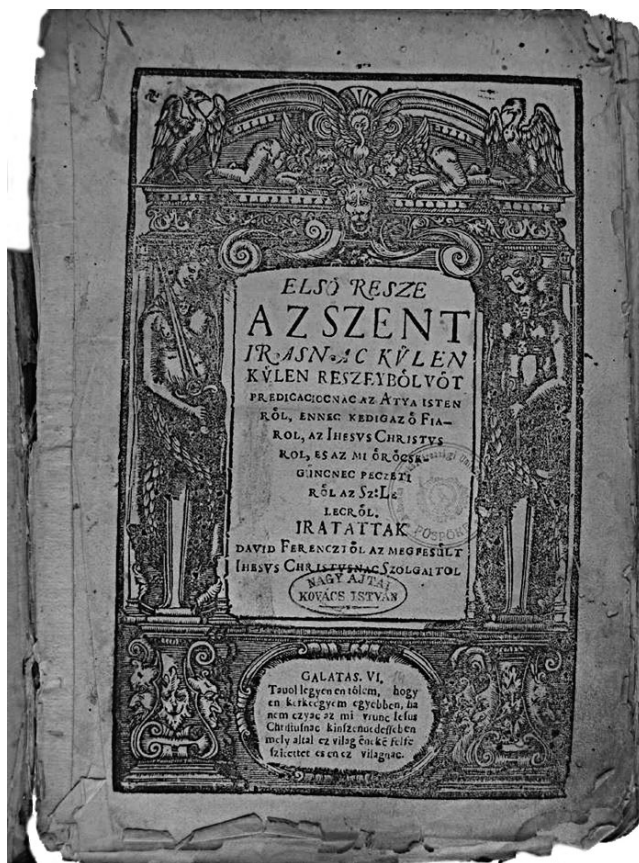 ELSÖ RESZE
AZ SZENT
IRASNAC KVLEN
KVLEN RESZEYBÖL VÖT
PREDICACIOCNAC AZ ATYA ISTEN
RÖL, ENNEC KEDIG AZ Ö FIA-
ROL, AZ IHESVS CHRISTVS
ROL, ES AZ MI ÖRÖCSE-
GÜNCNEC PECZETI
RÖL AZ SZ: LE
LECRÖL.
IRATATTAK
DAVID FERENCZTÖL AZ MEGFESÜLT
IHESVS CHRISTVSNAC SZOLGAITOL
NAGY AJTAI
KOVÁCS ISTVÁN
PÜSPÖK
GALATAS. VI,
Tauol legyen en tölem, hogy
en kerkeegyem egyebben, ha
nem czyac az mi vrunc Iesus
Christusnac kinszenuedesseben
mely altal ez vilag éneké felfe
szittet es en ez vilagnac.